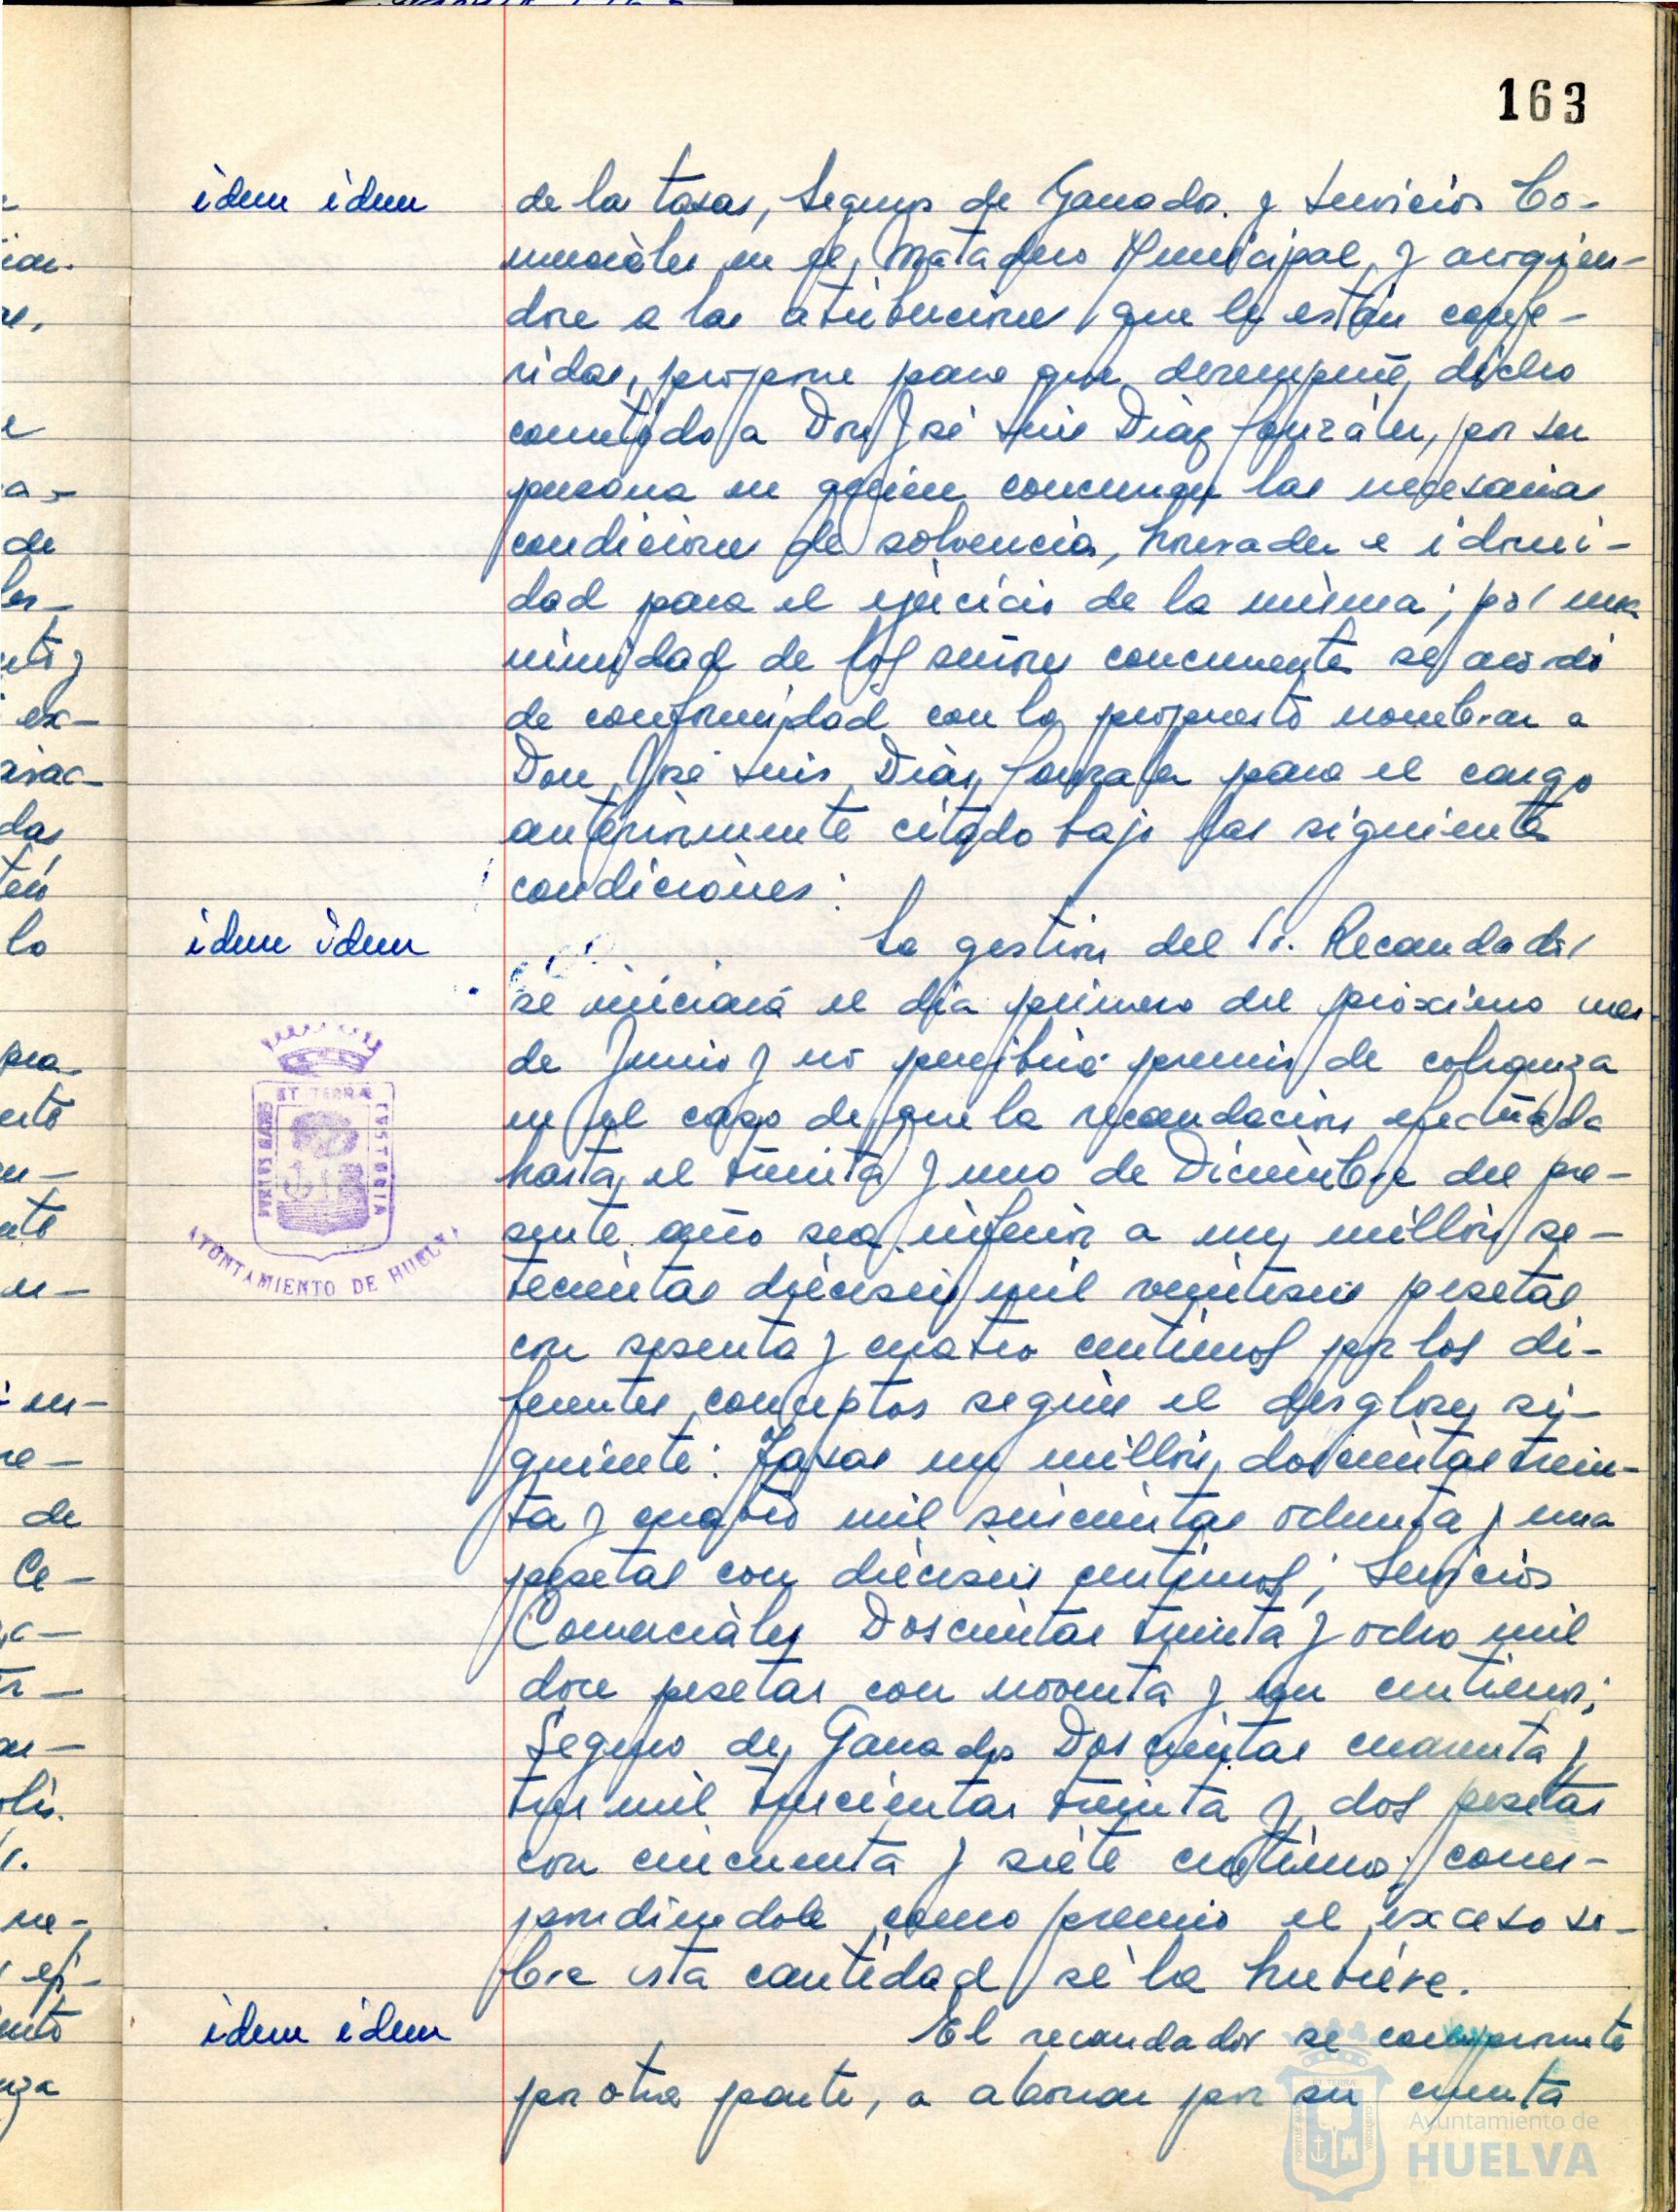 163
idem idem
de las tasas, Seguros de Ganados y Servicios Co-
merciales en el Matadero Municipal, y acogién-
dose a las atribuciones que le están confe-
ridas, propone para que desempeñe dicho
cometido a Don José Luis Díaz González, por ser
persona en quien concurren las necesarias
condiciones de solvencia, honradez e idonei-
dad para el ejercicio de la misma; por una
nimidad de los señores concurrentes se acordó
de conformidad con lo propuesto nombrar a
Don José Luis Díaz González para el cargo
anteriormente citado bajo las siguientes
condiciones:
idem idem
La gestión del Sr. Recaudador
se iniciará el día primero del próximo mes
de Junio y no percibirá premio de cobranza
en el caso de que la recaudación efectuada
hasta el treinta y uno de Diciembre del pre-
sente año sea inferior a un millón se-
tecientas dieciseis mil veintiseis pesetas
con sesenta y cuatro centimos por los di-
ferentes conceptos según el desglose si-
guiente: Tasas un millón doscientas trein-
ta y cuatro mil seiscientas ochenta y una
pesetas con dieciseis centimos; Servicios
Comerciales Doscientas treinta y ocho mil
doce pesetas con noventa y un centimos;
Seguro de Ganados Doscientas cuarenta y
tres mil trescientas treinta y dos pesetas
con cincuenta y siete centimos; corres-
pondiendole como premio el exceso so-
bre esta cantidad si la hubiere.
idem idem
El recaudador se compromete
por otra parte, a abonar por su cuenta
PORTUS MARIS ET TERRAE CUSTODIA
AYUNTAMIENTO DE HUELVA
Ayuntamiento de
HUELVA